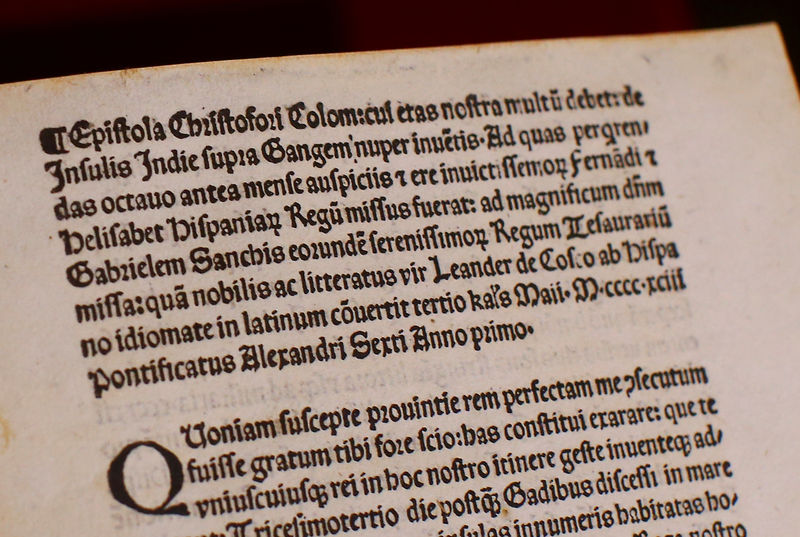 ¶Epistola Christofori Colom:cui etas nostra multū debet:de
Insulis Indie supra Gangem nuper inuētis·Ad quas perqren/
das octauo antea mense auspiciis ⁊ ere inuictissemoꝝ Fernādi ⁊
Helisabet Hispaniaꝝ Regū missus fuerat: ad magnificum dn̄m
Gabrielem Sanchis eorundē serenissimoꝝ Regum Tesaurariū
missa: quā nobilis ac litteratus vir Leander de Cosco ab Hispa
no idiomate in latinum cōuertit tertio kal's Maii· M·cccc·xciii
Pontificatus Alexandri Sexti Anno primo·
QUoniam suscepte prouintie rem perfectam me ꝯsecutum
fuisse gratum tibi fore scio:has constitui exarare: que te
vniuscuiusqꝫ rei in hoc nostro itinere geste inuenteqꝫ ad/
Tricesimotertio die postqꝫ̄ Gadibus discessi in mare
insulas innumeris habitatas ho/
nostro